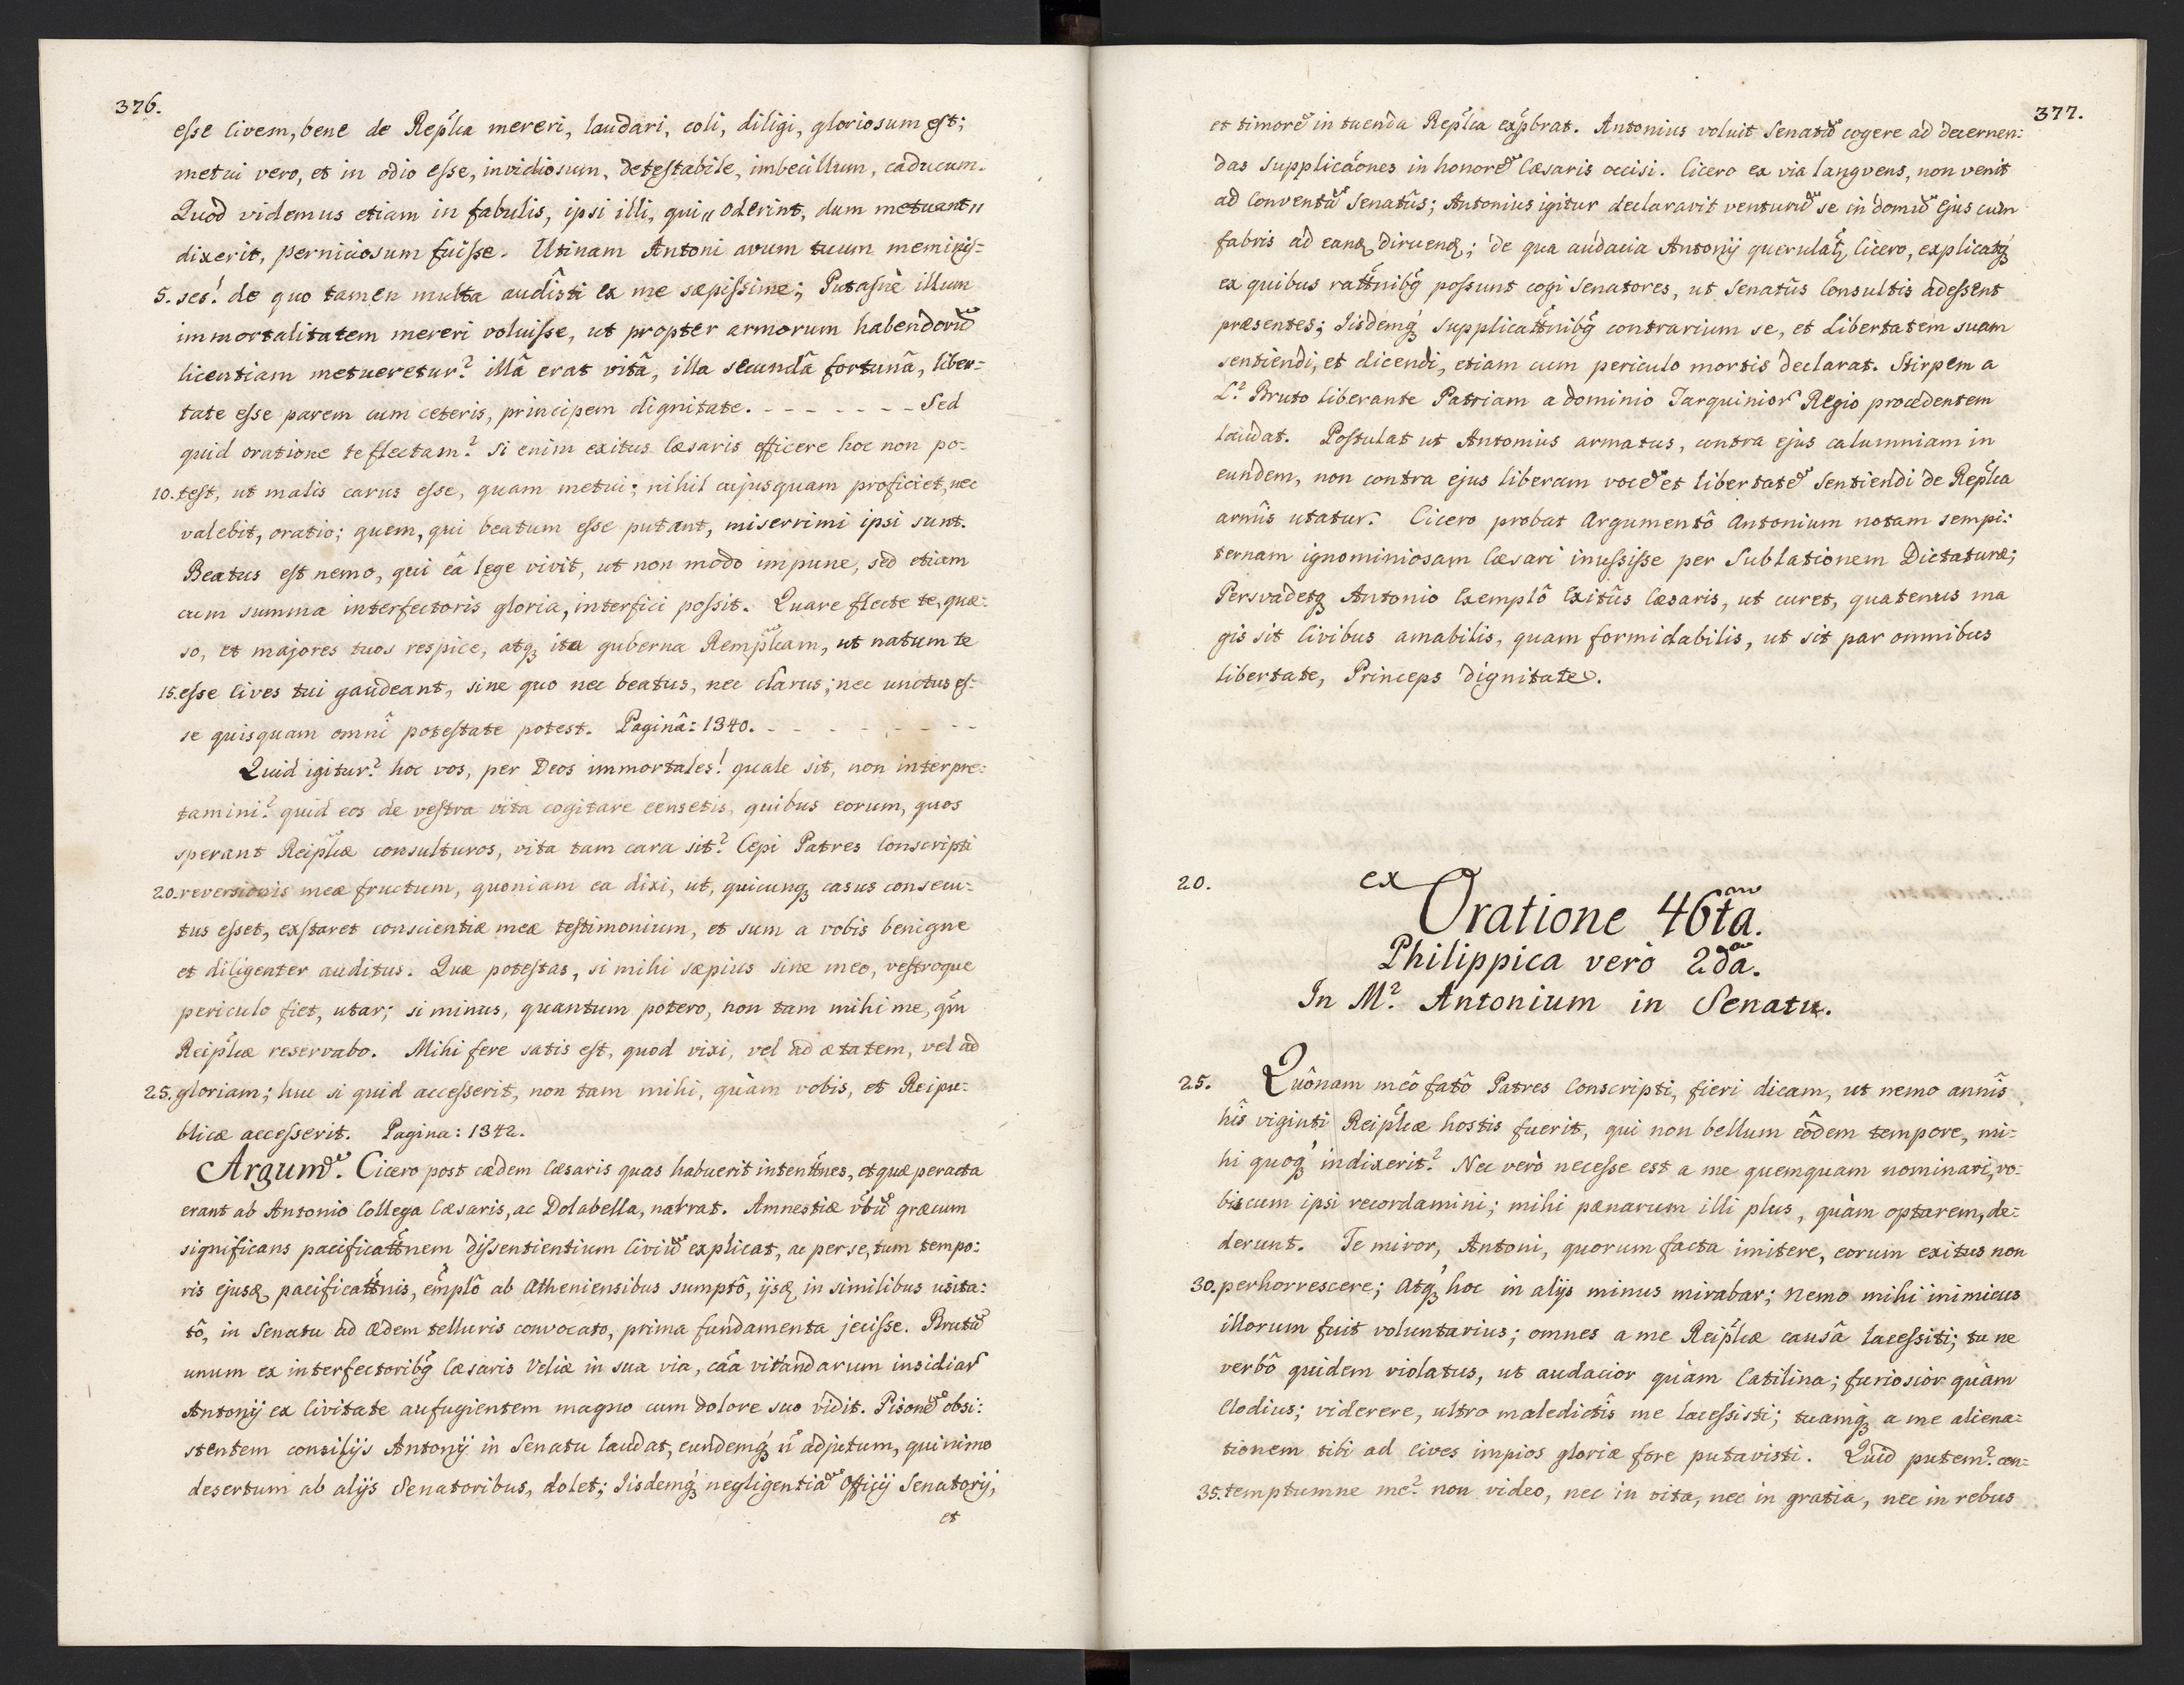 376.
esse Civem, bene de Repl̃ca mereri, laudari, coli, diligi, gloriosum est;
metui vero, et in odio esse, invidiosum, detestabile, imbecillum, caducum.
Quod videmus etiam in fabulis, ipsi illi, qui „ Oderint, dum metuant „
dixerit, perniciosum fuisse. Utinam Antoni avum tuum meminis=
5. ses! de quo tamen multa audîsti ex me sæpissime; Putasnè illum
immortalitatem mereri voluisse, ut propter armorum habendorũ
licentiam metueretur? illâ erat vitâ, illa secundâ fortunâ, liber=
tate esse parem cum ceteris, principem dignitate. - - - - - - - Sed
quid oratione te flectam? Si enim exitus Cæsaris efficere hoc non po=
10. test, ut malis carus esse, quam metui; nihil cujusquam proficiet, nec
valebit, oratio; quem, qui beatum esse putant, miserrimi ipsi sunt.
Beatus est nemo, qui eâ lege vivit, ut non modo impune, sed etiam
cum summa interfectoris gloria, interfici possit. Quare flecte te, quæ=
so, et majores tuos respice, atq3 ita guberna Rempl̃cam, ut natum te
15. esse Cives tui gaudeant, sine quo nec beatus, nec clarus; nec unctus es=
se quisquam omnî potestate potest. Paginâ: 1340. - - - - - - -
Quid igitur? hoc vos, per Deos immortales! quale sit, non interpre=
tamini? quid eos de vestra vita cogitare censetis, quibus eorum, quos
sperant Reipl̃cæ consulturos, vita tam cara sit? Cepi Patres Conscripti
20. reversionis meæ fructum, quoniam ea dixi, ut, quicunq3 casus consecu=
tus esset, exstaret conscientiæ meæ testimonium, et sum a vobis benigne
et diligenter auditus. Quæ potestas, si mihi sæpius sine meo, vestroque
periculo fiet, utar; si minus, quantum potero, non tam mihi me, qm̃
Reipl̃cæ reservabo. Mihi fere satis est, quod vixi, vel ad ætatem, vel ad
25. gloriam; huc si quid accesserit, non tam mihi, quàm vobis, et Reipu=
blicæ accesserit. Pagina: 1342.
Argum̃. Cicero post cædem Cæsaris quas habuerit intent̃nes, et quæ peracta
erant ab Antonio Collega Cæsaris, ac Dolabella, narrat. Amnestiæ vb̃ũ græcum
significans pacificatt̃nem dissentientium Civiũ explicat, ac per se, tum tempo=
ris ejusq3 pacificatt̃nis, em̃plô ab Atheniensibus sumptô, ijsq3 in similibus usita=
tô, in Senatu ad ædem telluris convocato, prima fundamenta jecisse. Brutũ
unum ex interfectorib9 Cæsaris Veliæ in sua via, cãa vitandarum insidiar̃
Antonij ex Civitate aufugientem magno cum dolore suo vidit. Pisonẽ obsi=
stentem consilijs Antonij in Senatu laudat, eundemq3 ñ adjutum, quinimo
desertum ab alijs Senatoribus, dolet; Iisdemq3 negligentiã Officij Senatorij,
et
377.
et timorẽ in tuenda Repl̃ca exp̃brat. Antonius voluit Senatũ cogere ad decernen=
das Supplicãones in honorẽ Cæsaris occisi. Cicero ex via langvens, non venit
ad Conventũ Senatûs; Antonius igitur declaravit venturũ se in domũ Ejus cum
fabris ad eanq3 diruenq3; de qua audacia Antonij querulat̃, Cicero, explicatq3
ex quibus ratt̃nib9 possunt cogi Senatores, ut Senatûs Consultis adessent
præsentes; Iisdemq3 supplicatt̃nib9 contrarium se, et Libertatem suam
sentiendi, et dicendi, etiam cum periculo mortis declarat. Stirpem a
L? Bruto liberante Patriam a dominio Tarquinior̃ Regio procedentem
laudat. Postulat ut Antonius armatus, contra ejus calumniam in
eundem, non contra ejus liberam vocẽ et libertatẽ Sentiendi de Repl̃ca
armîs utatur. Cicero probat Argumentô Antonium notam sempi=
ternam ignominiosam Cæsari inussisse per Sublationem Dictaturæ;
Persvadetq3 Antonio Exemplô Exitûs Cæsaris, ut curet, quatenus ma
gis sit Civibus amabilis, quam formidabilis, ut sit par omnibus
libertate, Princeps dignitate.
20. ex
Oratione 46ta.
Philippica verò 2da.
In M? Antonium in Senatu.
25. Quônam meô fatô Patres Conscripti, fieri dicam, ut nemo annîs
hîs viginti Reipl̃cæ hostis fuerit, qui non bellum eôdem tempore, mi=
hi quoq3 indixerit? Nec verò necesse est a me quemquam nominari, vo=
biscum ipsi recordamini; mihi pænarum illi plus, quàm optarem, de=
derunt. Te miror, Antoni, quorum facta imitere, eorum exitus non
30. perhorrescere; Atq3 hoc in alijs minus mirabar; Nemo mihi inimicus
illorum fuit voluntarius; omnes a me Reipl̃cæ causâ lacessiti; tu ne
verbô quidem violatus, ut audacior quàm Catilina; furiosior quàm
Clodius; viderere, ultro maledictîs me lacessisti; tuamq3 a me aliena=
tionem tibi ad Cives impios gloriæ fore putavisti. Quid putem? con=
35. temptumne me? non video, nec in vita, nec in gratia, nec in rebus